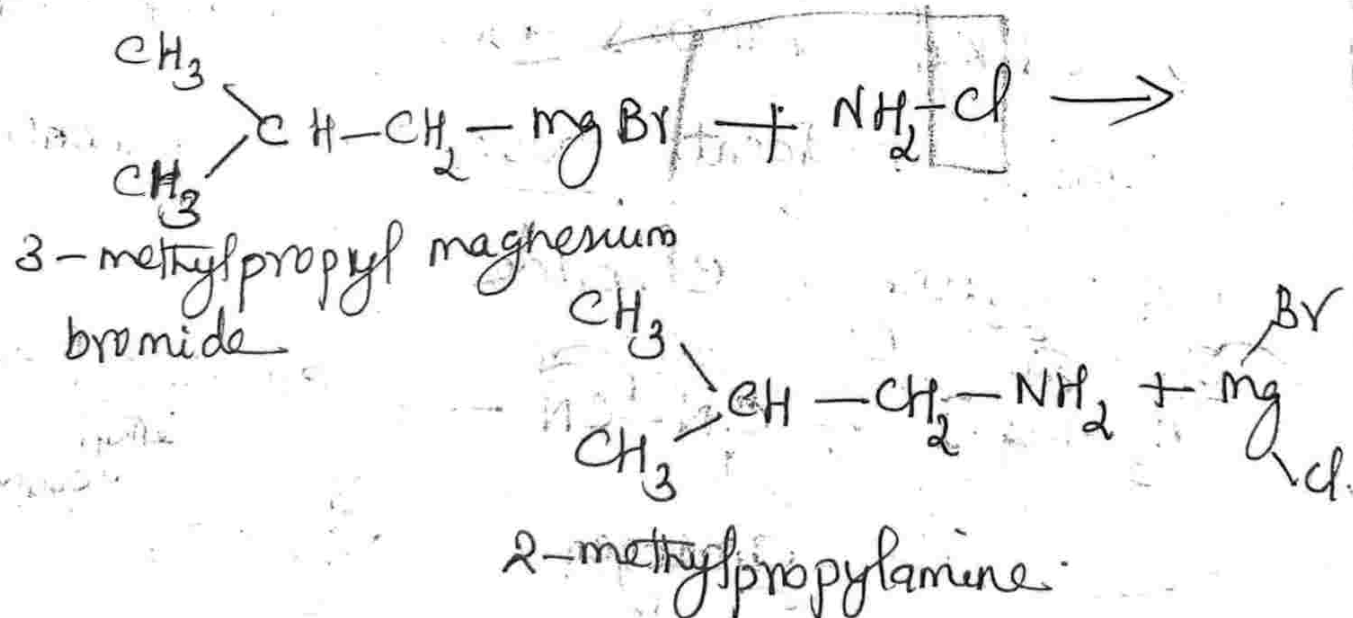 CH3
CH-CH2-mgBr + NH2-Cl →
CH3
3-methylpropyl magnesium
bromide
CH3
CH-CH2-NH2 + mg
Br
Cl
CH3
2-methylpropylamine.